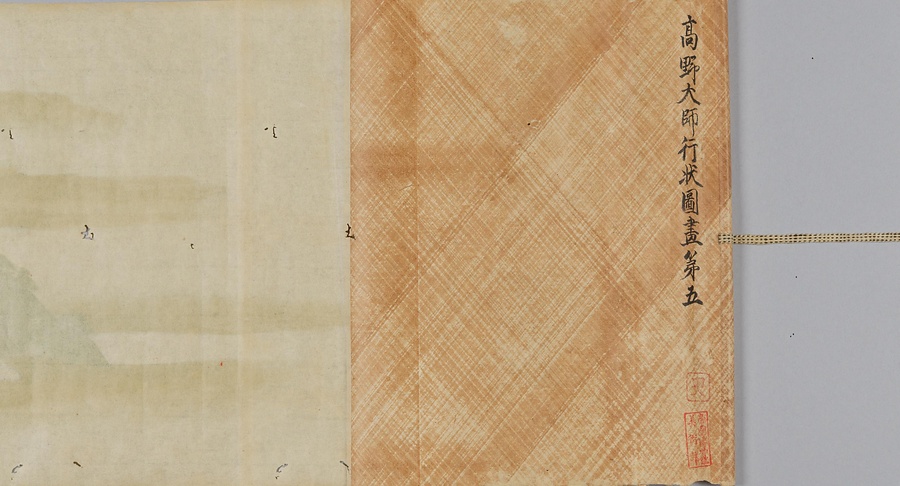 高野大師行状圖畫第五
土